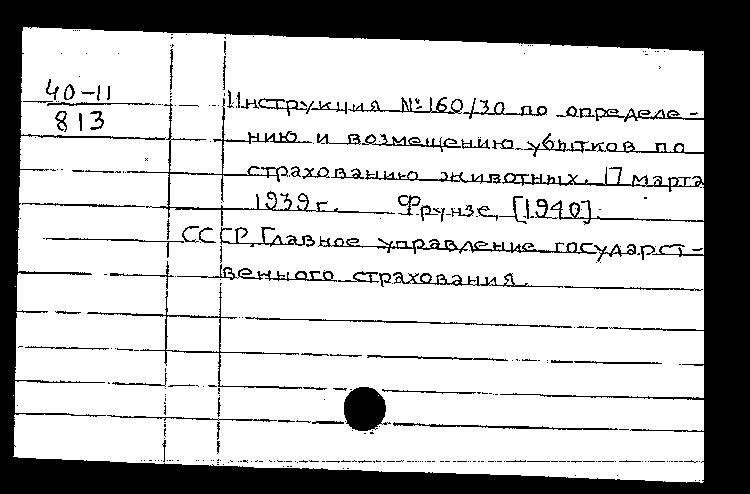 40-11
813
Инструкция №160/30 по определе-
нию и возмещению убытков по
страхованию животных. 17 марта
1939 г. Фрунзе, [1940].
СССР. Главное управление государст-
венного страхования.